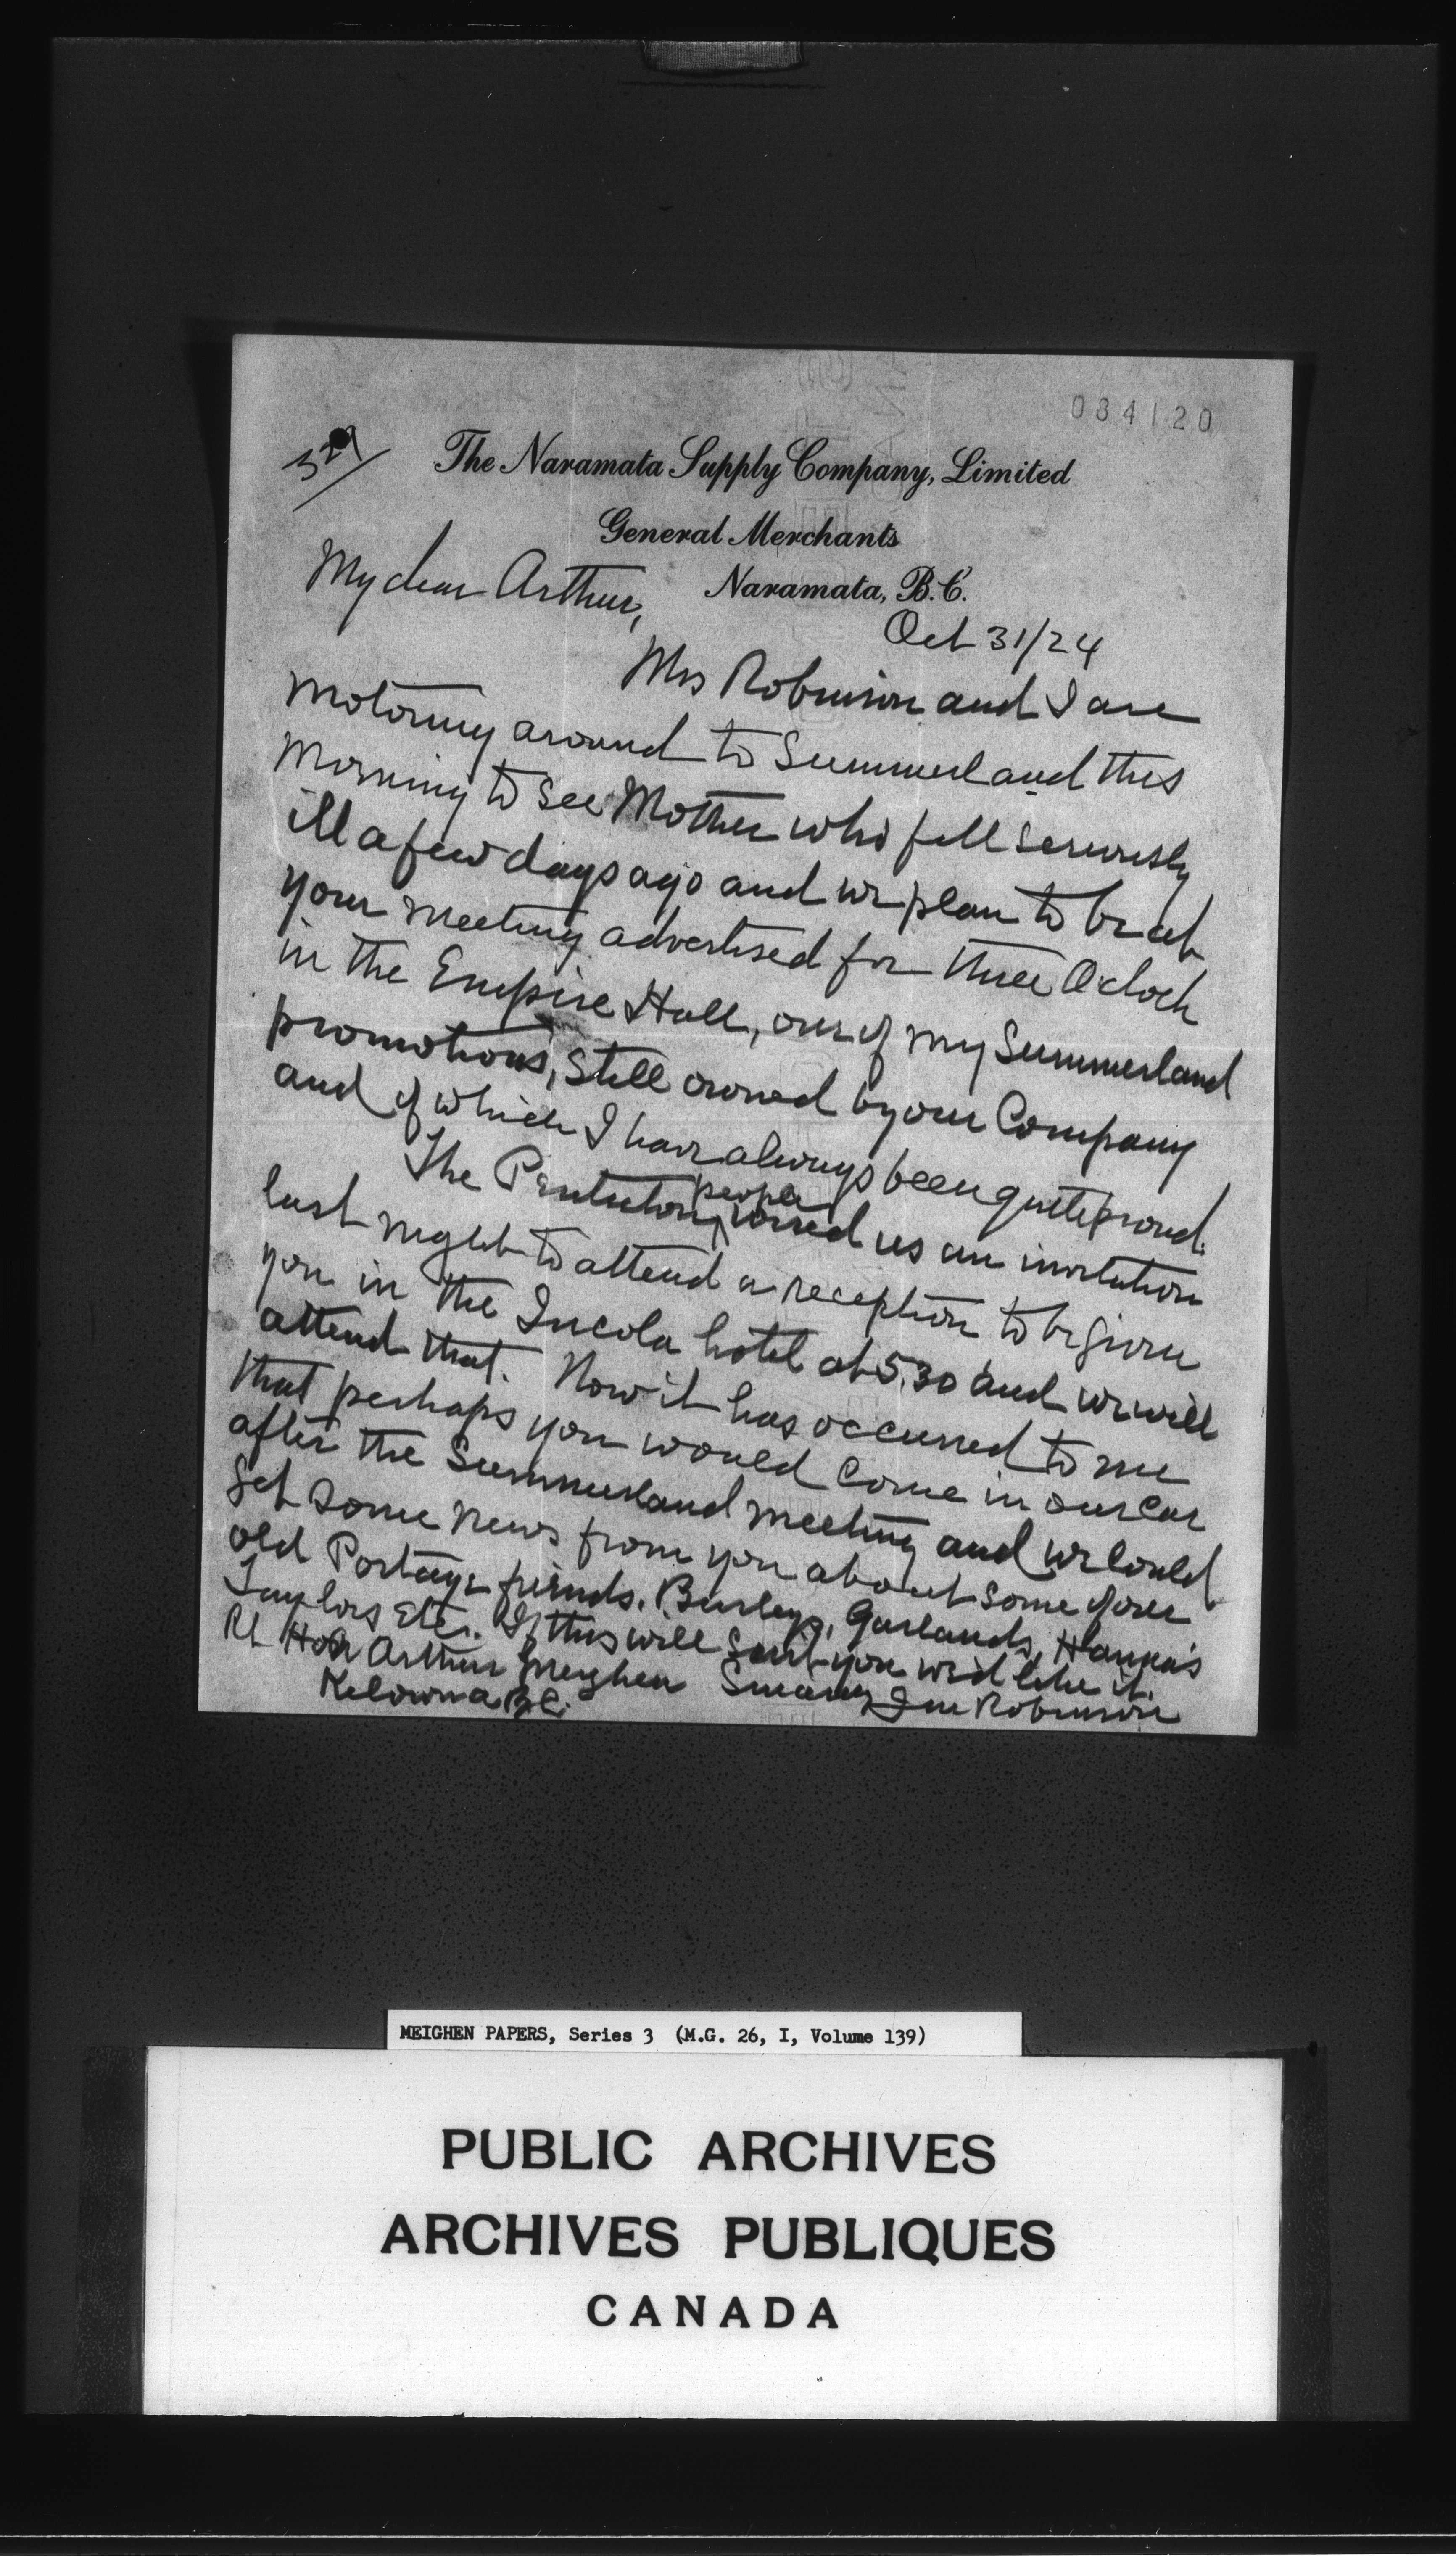 084120
329
The Naramata Supply Company, Limited
General Merchants
Naramata, B.C.
My dear Arthur,
Oct 31/24
Mrs Robinson and I are
motoring around to Summerland this
morning to see Mother who fell seriously
ill a few days ago and we plan to be at
your meeting advertised for three O'clock
in the Empire Hall, one of my Summerland
promotions, still owned by our Company
and of which I have always been quite proud.
The Penticton people wired us an invitation
last night to attend a reception to be given
you in the Incola hotel at 5.30 and we will
attend that. Now it has occurred to me
that perhaps you would come in our car
after the Summerland meeting and we could
get some news from you about some of our
old Portage friends. Burleys, Garlands, Hanna's
Taylors Etc. If this will suit you we'd like it.
Rt Hon Arthur Meighen Sincerely Jm Robinson
Kelowna B.C.
MEIGHEN PAPERS, Series 3 (M.G. 26, I, Volume 139)
PUBLIC ARCHIVES
ARCHIVES PUBLIQUES
CANADA